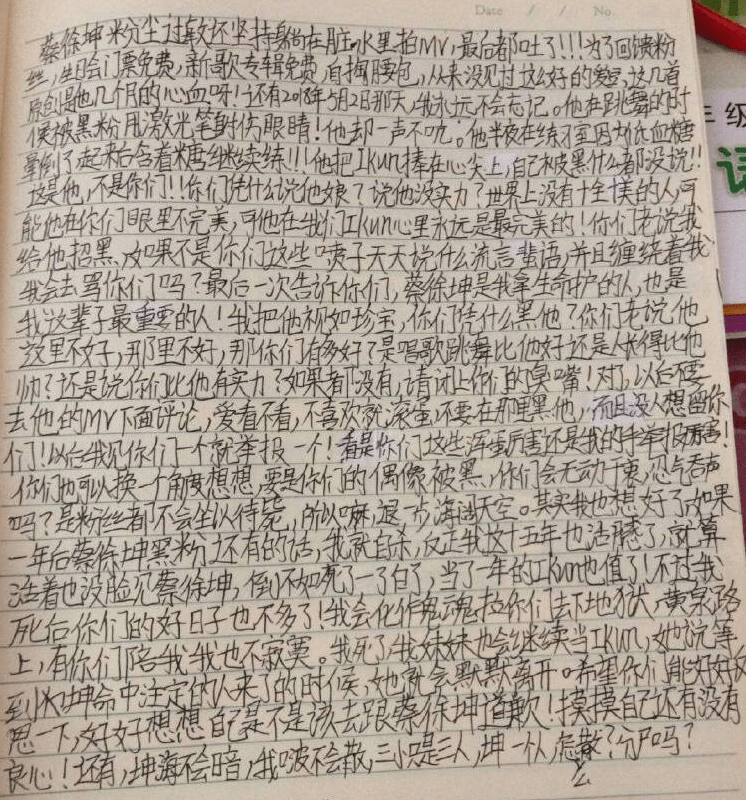 Date / / No.
蔡徐坤粉尘过敏还坚持身躺在脏水里拍MV,最后都吐了!!!为了回馈粉
丝,生日会门票免费,新歌专辑免费,自掏腰包,从来没见过这么好的爱豆,这几首
原创是他几个月的心血呀!还有2018年5月2日那天,我永远不会忘记。他在跳舞的时
候被黑粉用激光笔射伤眼睛!他却一声不吭。他半夜在练习室因为低血糖
晕倒了起来后含着糖继续练!!!他把IKun捧在心尖上,自己被黑什么都没说!!
这是他,不是你们!!你们凭什么说他娘?说他没实力?世界上没有十全十美的人,可
能他在你们眼里不完美,可他在我们IKun心里永远是最完美的!你们老说我
给他招黑,如果不是你们这些喷子天天说什么流言蜚语,并且缠绕着我
我会去骂你们吗?最后一次告诉你们,蔡徐坤是我拿生命护的人,也是
我这辈子最重要的人!我把他视如珍宝,你们凭什么黑他?你们老说他
这里不好,那里不好,那你们有多好?是唱歌跳舞比他好还是人长得比他
帅?还是说你们比他有实力?如果都没有,请闭上你们的臭嘴!对了,以后不要
去他的MV下面评论,爱看不看,不喜欢就滚蛋,不要在那里黑他,而且没人想留你
们!以后我见你们一个就举报一个!看是你们这些浑蛋厉害还是我的手举报厉害!
你们也可以换一个角度想想,要是你们的偶像被黑,你们会无动于衷,忍气吞声
吗?是粉丝都不会坐以待毙,所以嘛,退一步海阔天空。其实我也想好了,如果
一年后蔡徐坤黑粉还有的话,我就自杀,反正我这十五年也活腻了,就算
活着也没脸见蔡徐坤,倒不如死了一了百了,当了一年的IKun也值了!不过我
死后你们的好日子也不多了!我会化作鬼魂拉你们去下地狱,黄泉路
上,有你们陪我我也不寂寞。我死了我妹妹也会继续当IKun,她说等
到坤坤命中注定的人来了的时候,她就会默默离开。希望你们能好好反
思一下,好好想想自己是不是该去跟蔡徐坤道歉!摸摸自己还有没有
良心!还有,坤海不会暗,我啵不会散,三只是三人,坤一个人,怎么散?分尸吗?
年级